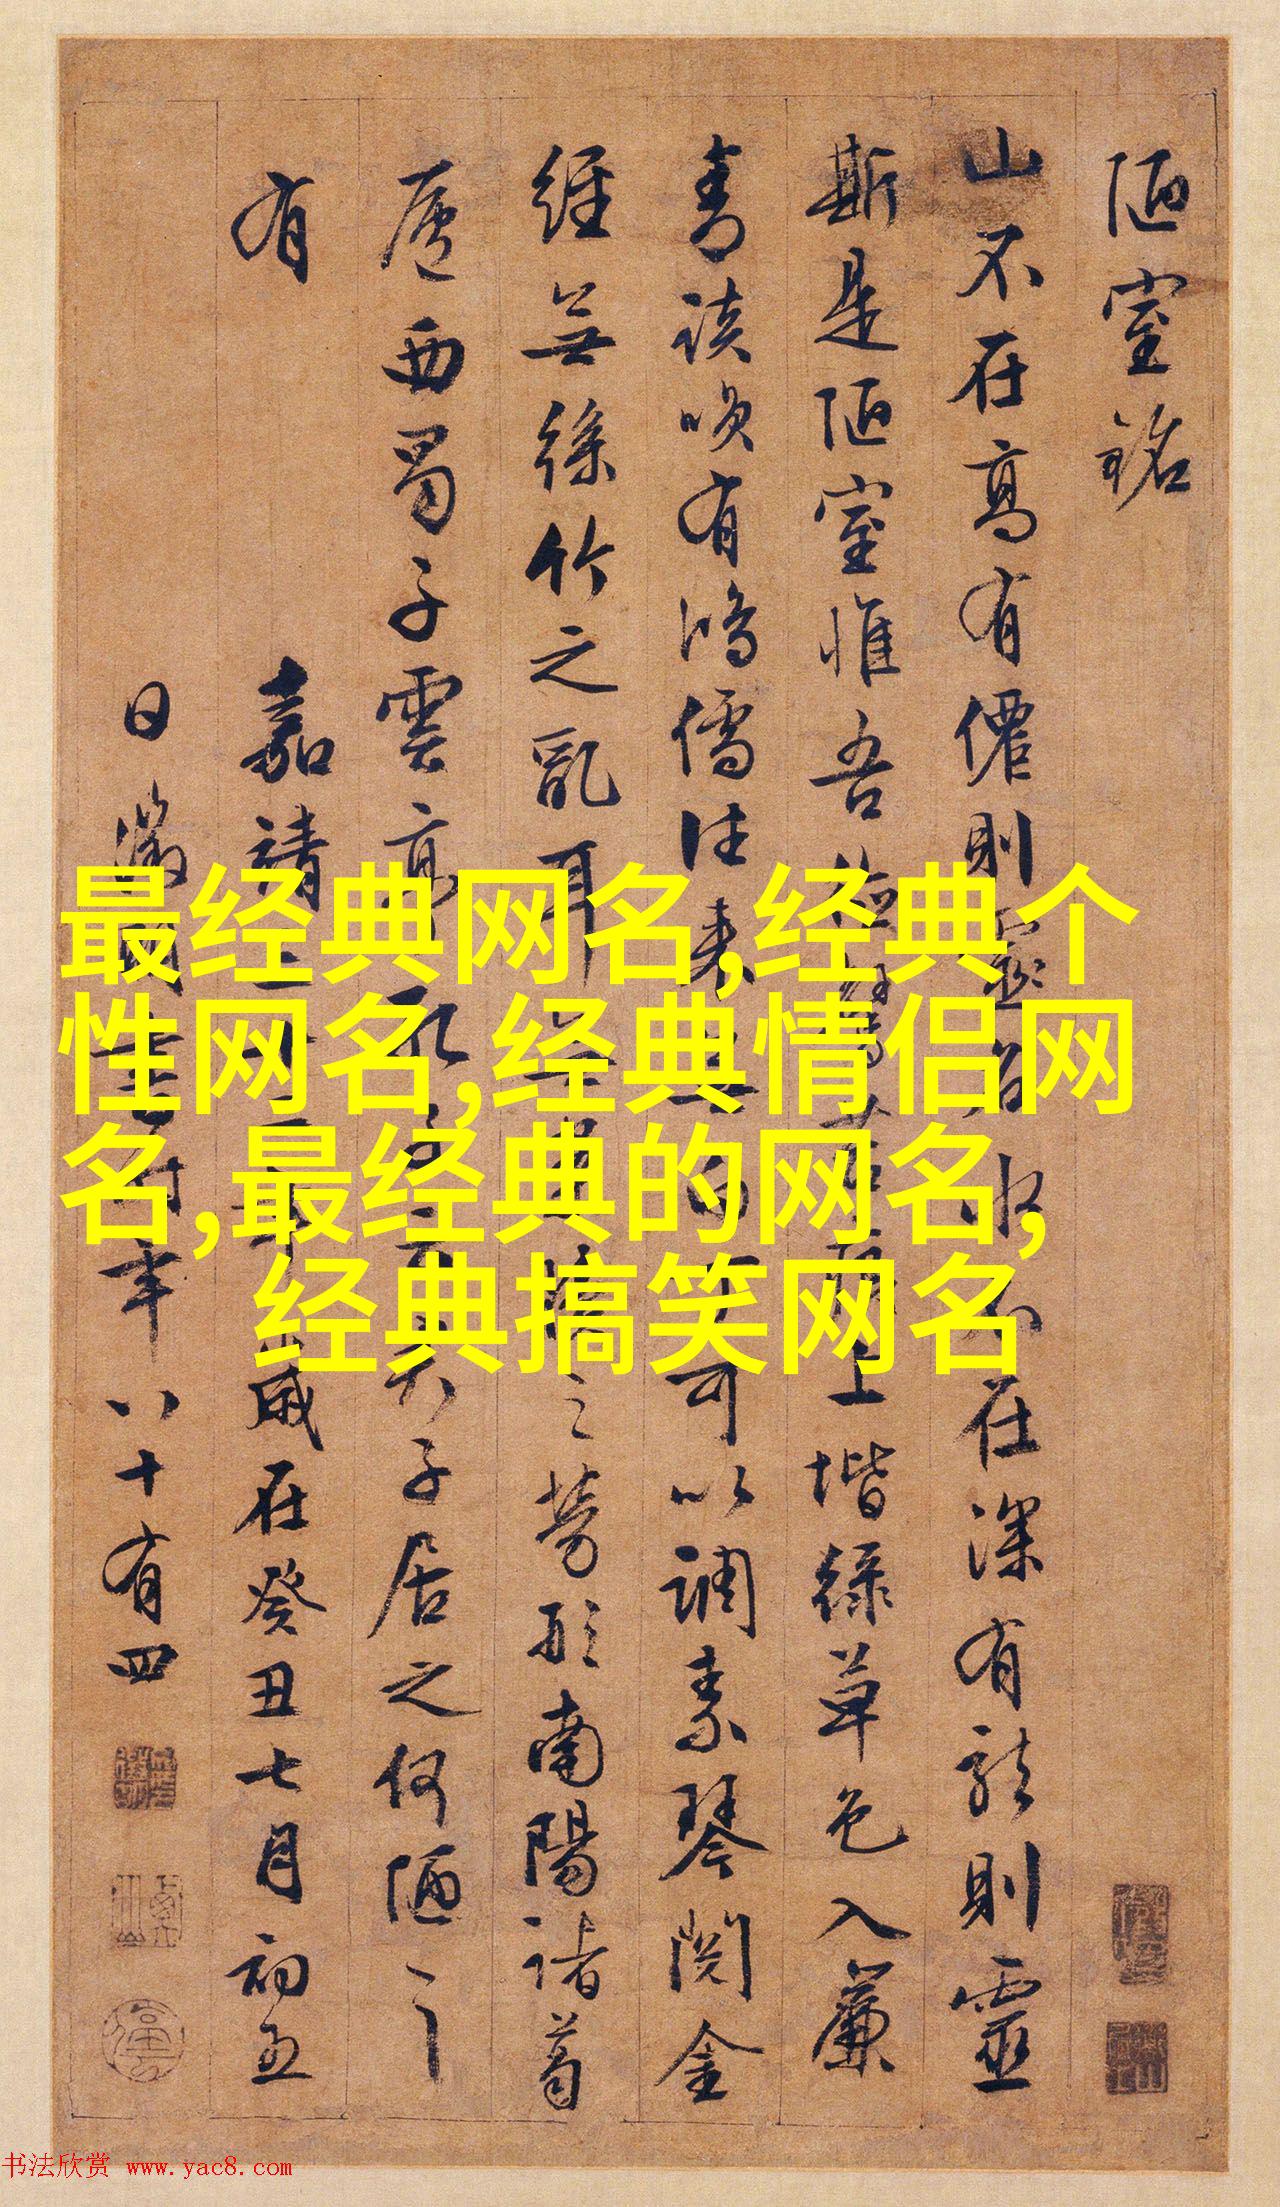 陋室銘
山不在高有僊則靈名水不在深有龍則靈
斯是陋室惟吾德馨苔痕上堦綠草色入簾
青談咲有鴻儒往來無白丁可以調素琴閱金
經無絲竹之亂耳無案牘之勞形南陽諸葛
廬西蜀子雲亭孔子云子居之何陋之
有
嘉靖三十二年歲在癸丑七月初五
日徵明書時年八十有四
最经典网名,经典个
性网名,经典情侣网
名,最经典的网名,
经典搞笑网名
书法欣赏 www.yac8.com